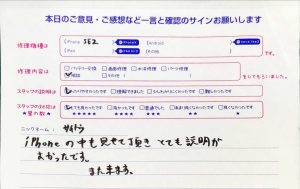 本日のご意見・ご感想など一言と確認のサインお願いします
修理機種は
iPhone SE2
Android
iPad
その他
修理内容は
バッテリー交換 画面修理 水没修理 パーツ修理
その他
をしてもらいました。
スタッフの説明は
わかりやすかった 理解できました 少しわかりにくかった 難しかった
スタッフの対応は
★星の数★
とても良かったです 良かったです 普通でした あまり良くなかったです 良くなかったです
★★★★★ ★★★★ ★★★ ★★ ★
ニックネーム：サイトウ
iPhoneの中も見せて頂きとても説明が
よかったです。
また来ます。